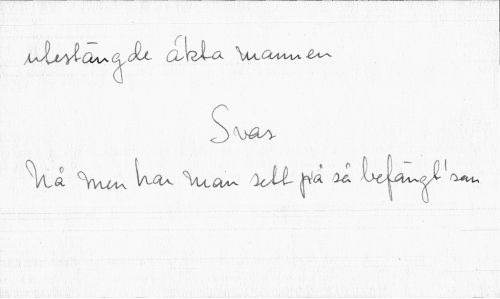 utestängde äkta mannen
Svar
Nå men har man sett på så befängt' san